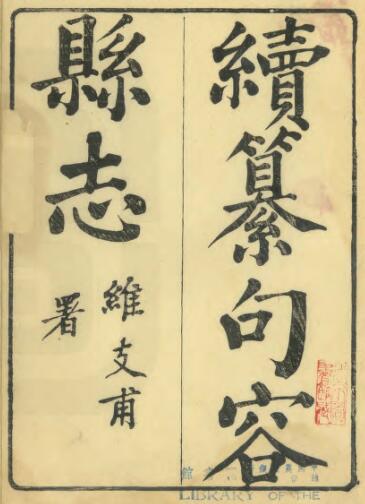 續纂句容
縣志
維支甫
署
LIBRARY OF THE